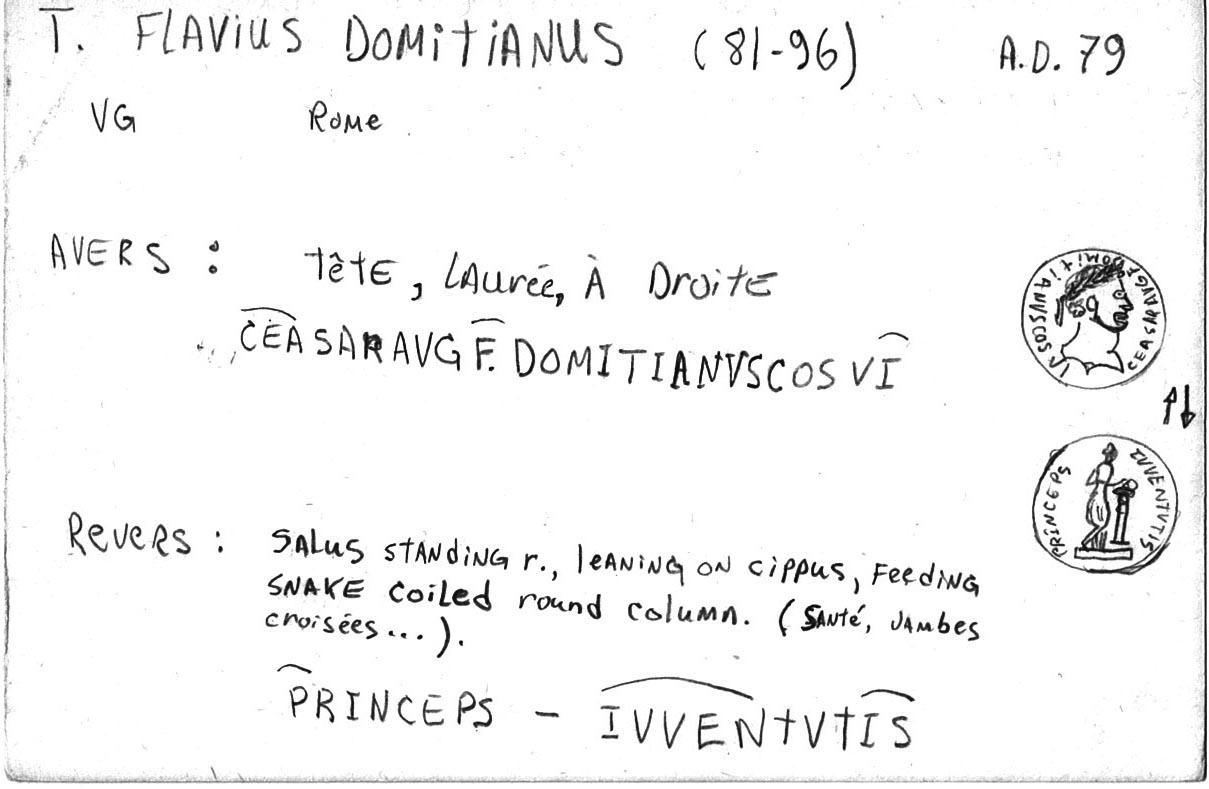 T. FLAViUS DOMitiANUS (81-96) A.D. 79
VG Rome
AVERS : TêTE, LAurée, À DroiTE
CEASARAVGF. DOMITIANVSCOS VI
CEASARAVGF DOMITIANUSCOS VI
PRINCEPS IVVENTVTIS
ReveRS : SALUS STANDiNG r., leANiNG ON cippus, FeeDiNG
SNAKE coiLed round columN. (SANté, JAMbes
croisées...).
PRINCEPS - IVVENTVTIS